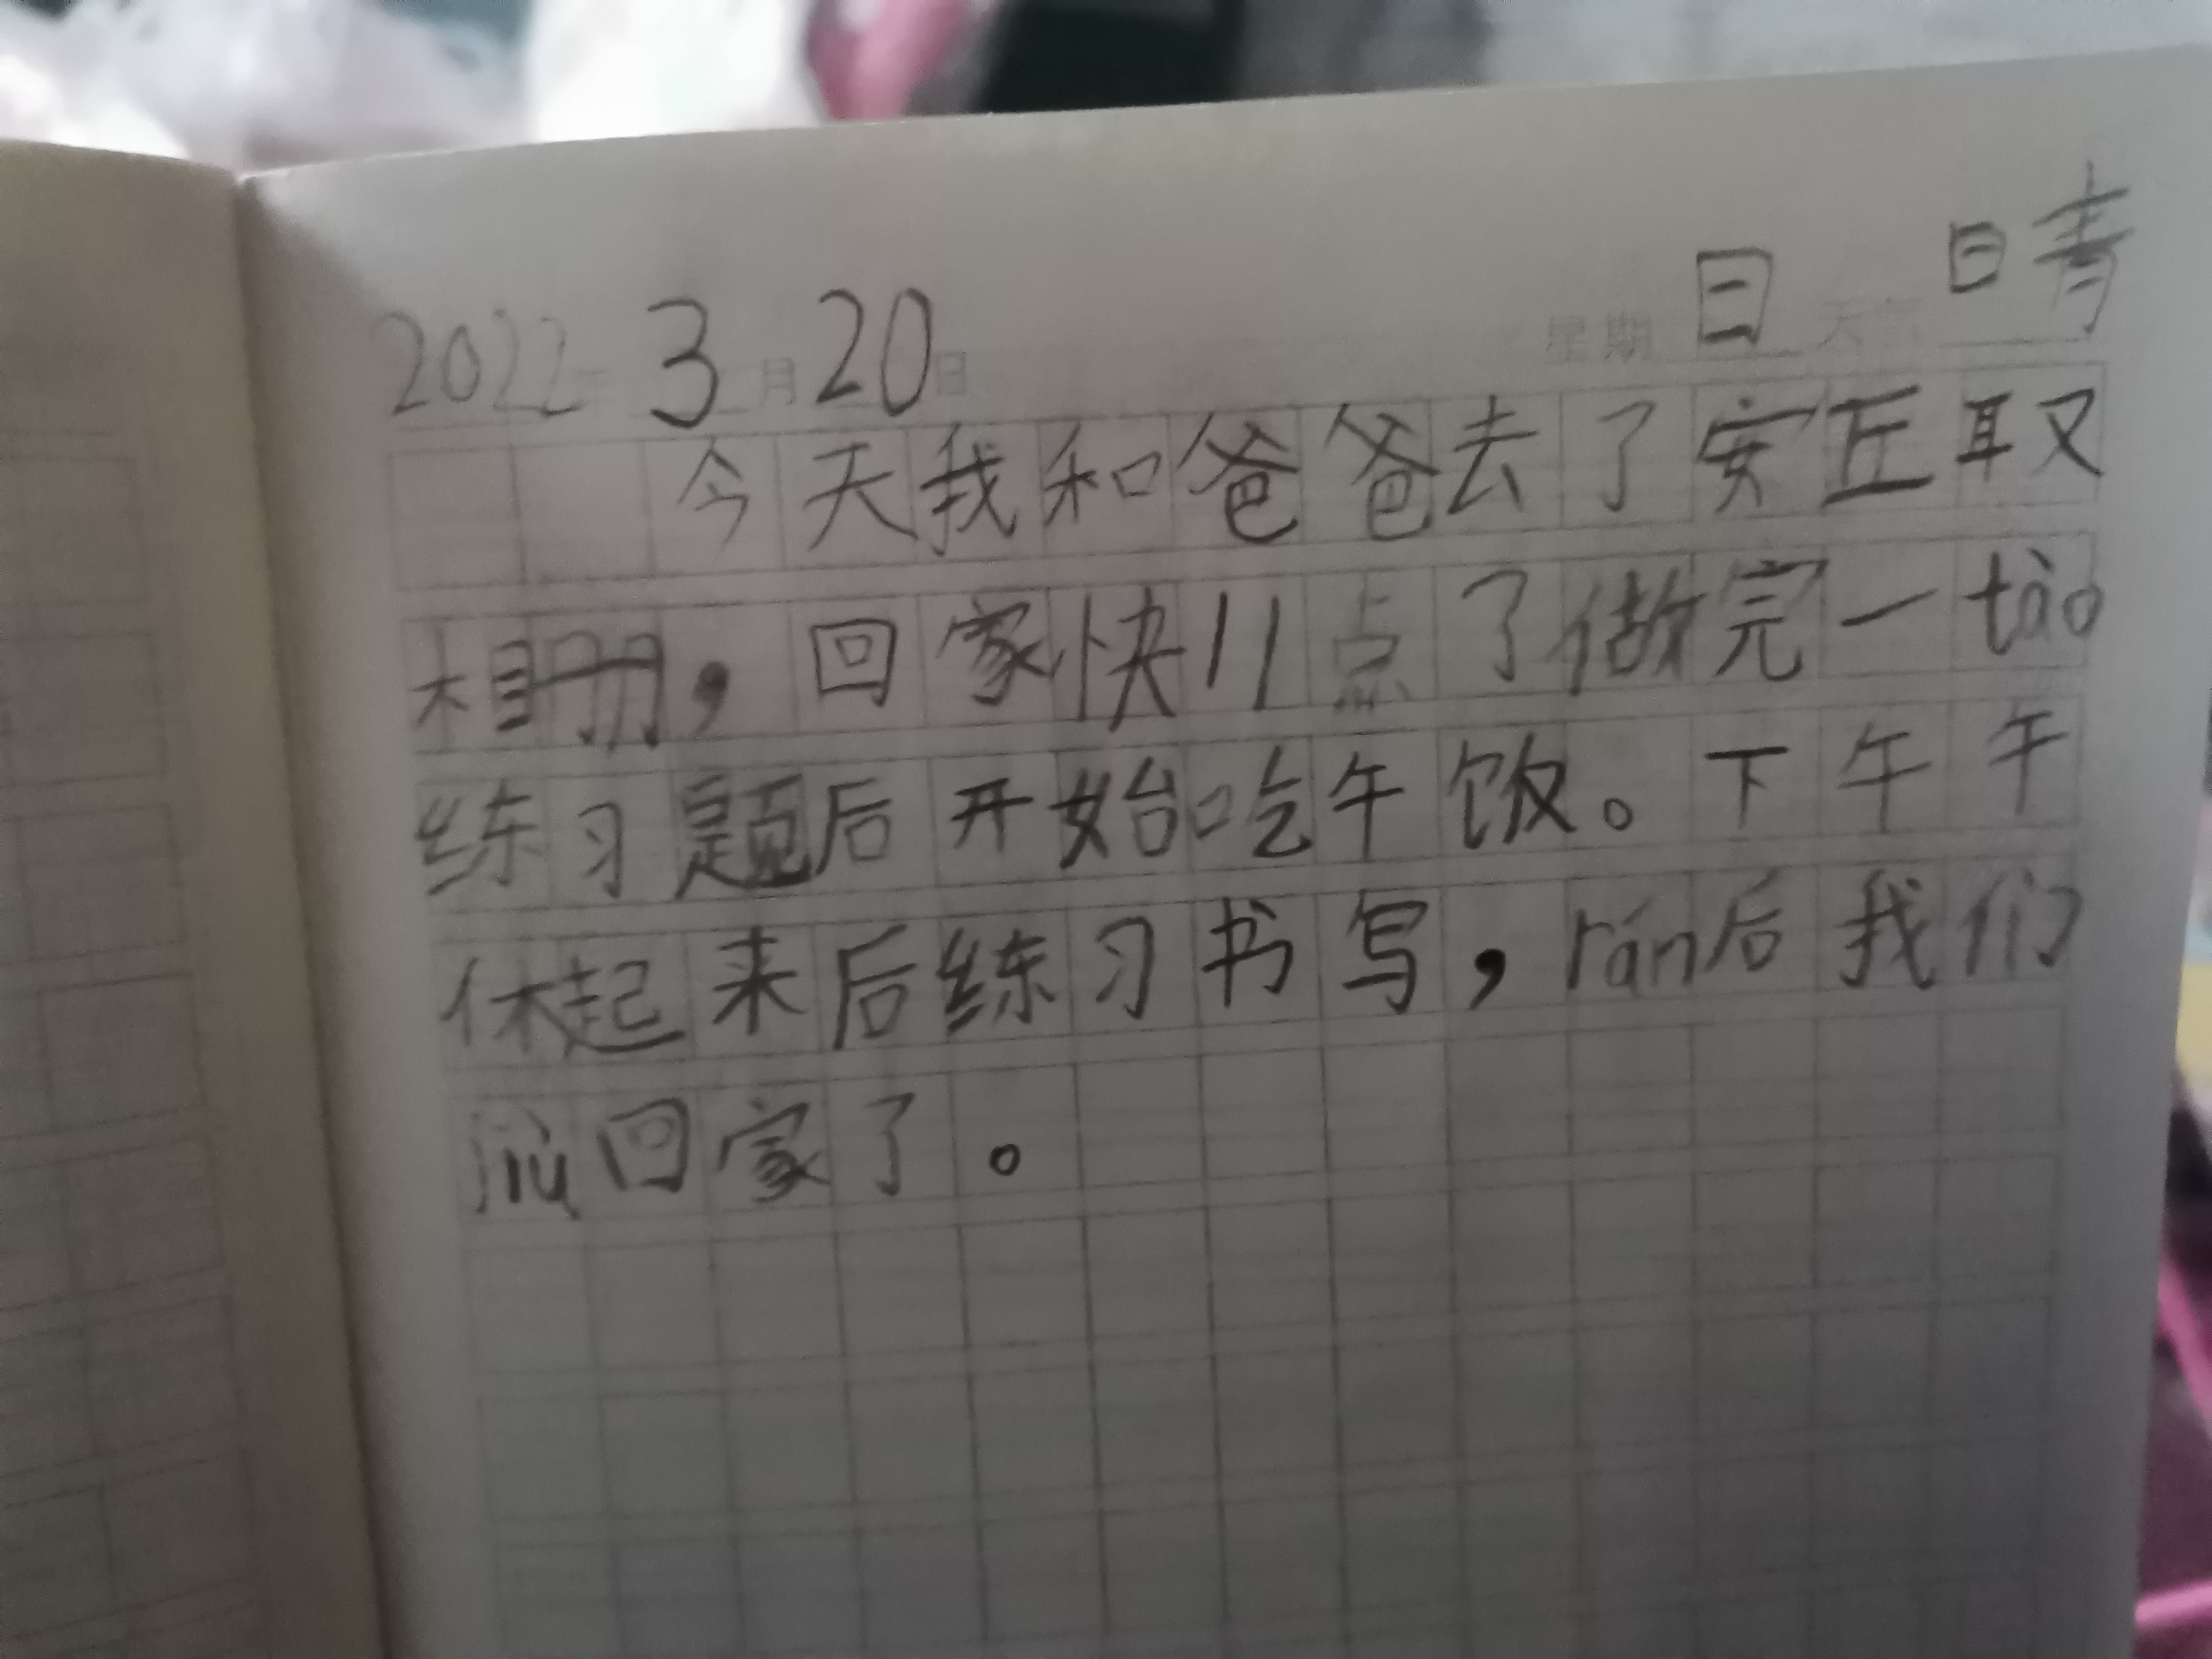 2022年 3月20日 星期日 天气 晴
今天我和爸爸去了安丘取
相册，回家快11点了做完一tào
练习题后开始吃午饭。下午午
休起来后练习书写，rán后我们
jiù回家了。